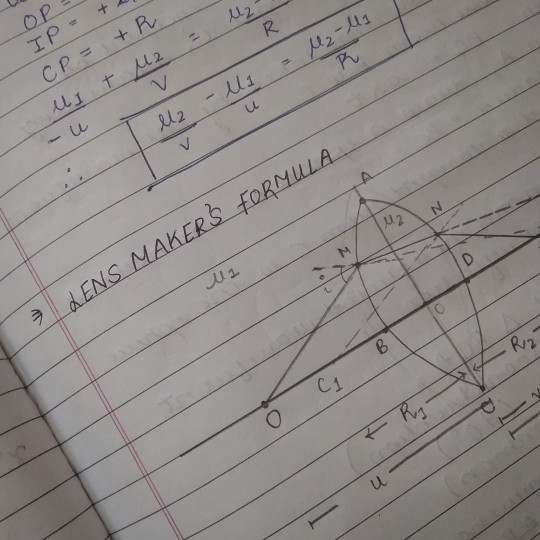 OP =
IP = +
CP = + R
μ1/-u + μ2/v = μ2-/R
∴ μ2/v - μ1/u = μ2-μ1/R
⇒ LENS MAKER'S FORMULA
A
μ2
N
μ1
M
i
D
C
B
C1
O
R2
R1
u